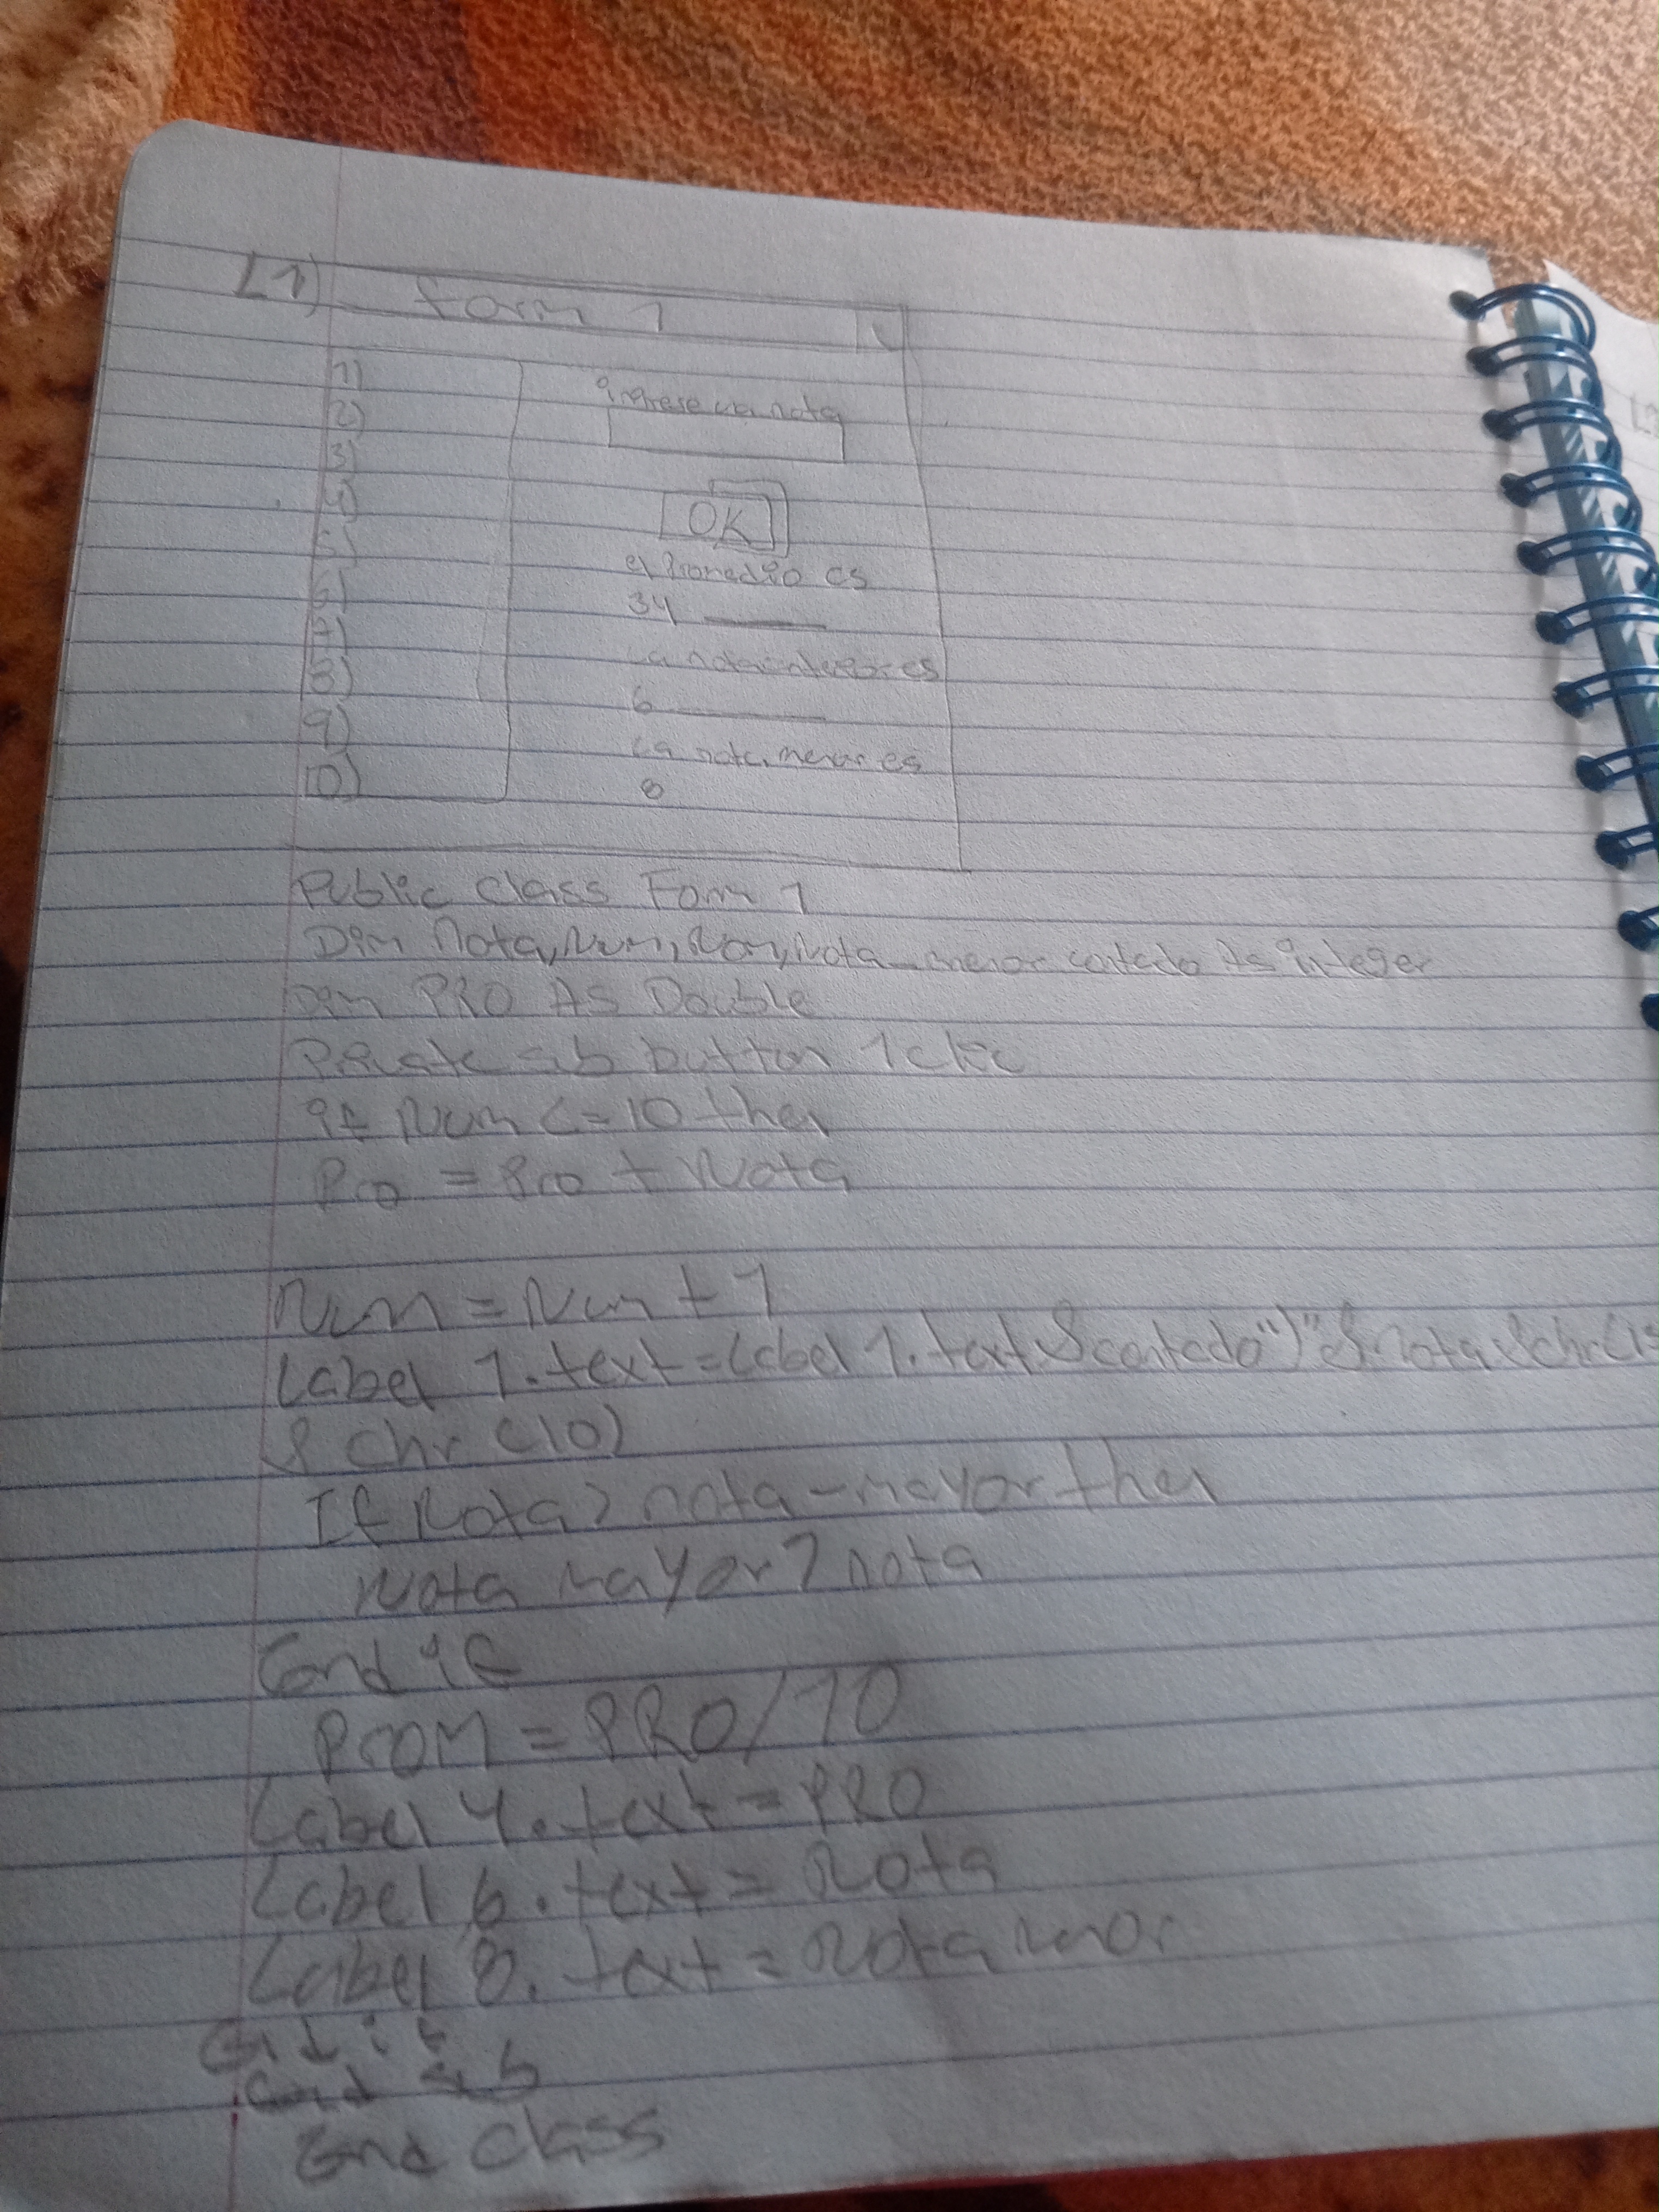 L1) form 1
1)
2)
3)
4)
5)
6)
7)
8)
9)
10)
ingrese la nota
OK
el Promedio es
34
La nota es
6
La nota menor es
8
Public Class Form 1
Dim Nota, Num, Nota_menor contado As integer
Dim PRO As Double
Private sub button 1 clic
if Num <= 10 then
Pro = Pro + Nota
Num = Num + 1
Label 1.text = Label 1.text & contado ")" & nota & chr(13
& chr (10)
If Nota > nota-mayor then
Nota mayor > nota
End if
PROM = PRO/10
Label 4.text = PRO
Label 6.text = Nota
Label 8.text = Nota
End if
End sub
End class